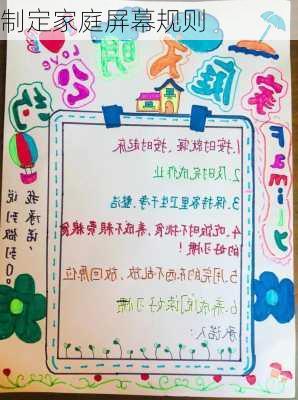 制定家庭屏幕规则
家庭文明公约
FamiLy
1.按时就寝、按时起床
2.及时完成作业
3.保持家里卫生干净、整洁
4.吃饭时不挑食、养成不剩粮食
的好习惯!
5.用完的东西不乱放、放回原位
6.养成阅读好习惯
承诺人:
我承诺,
说到做到。